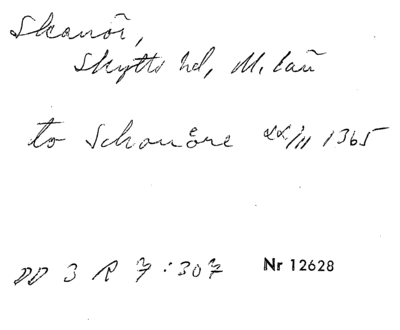 Skanör,
Skytts hd, M. län
to Schonøre 22/11 1365
DD 3 R 7:307 Nr 12628